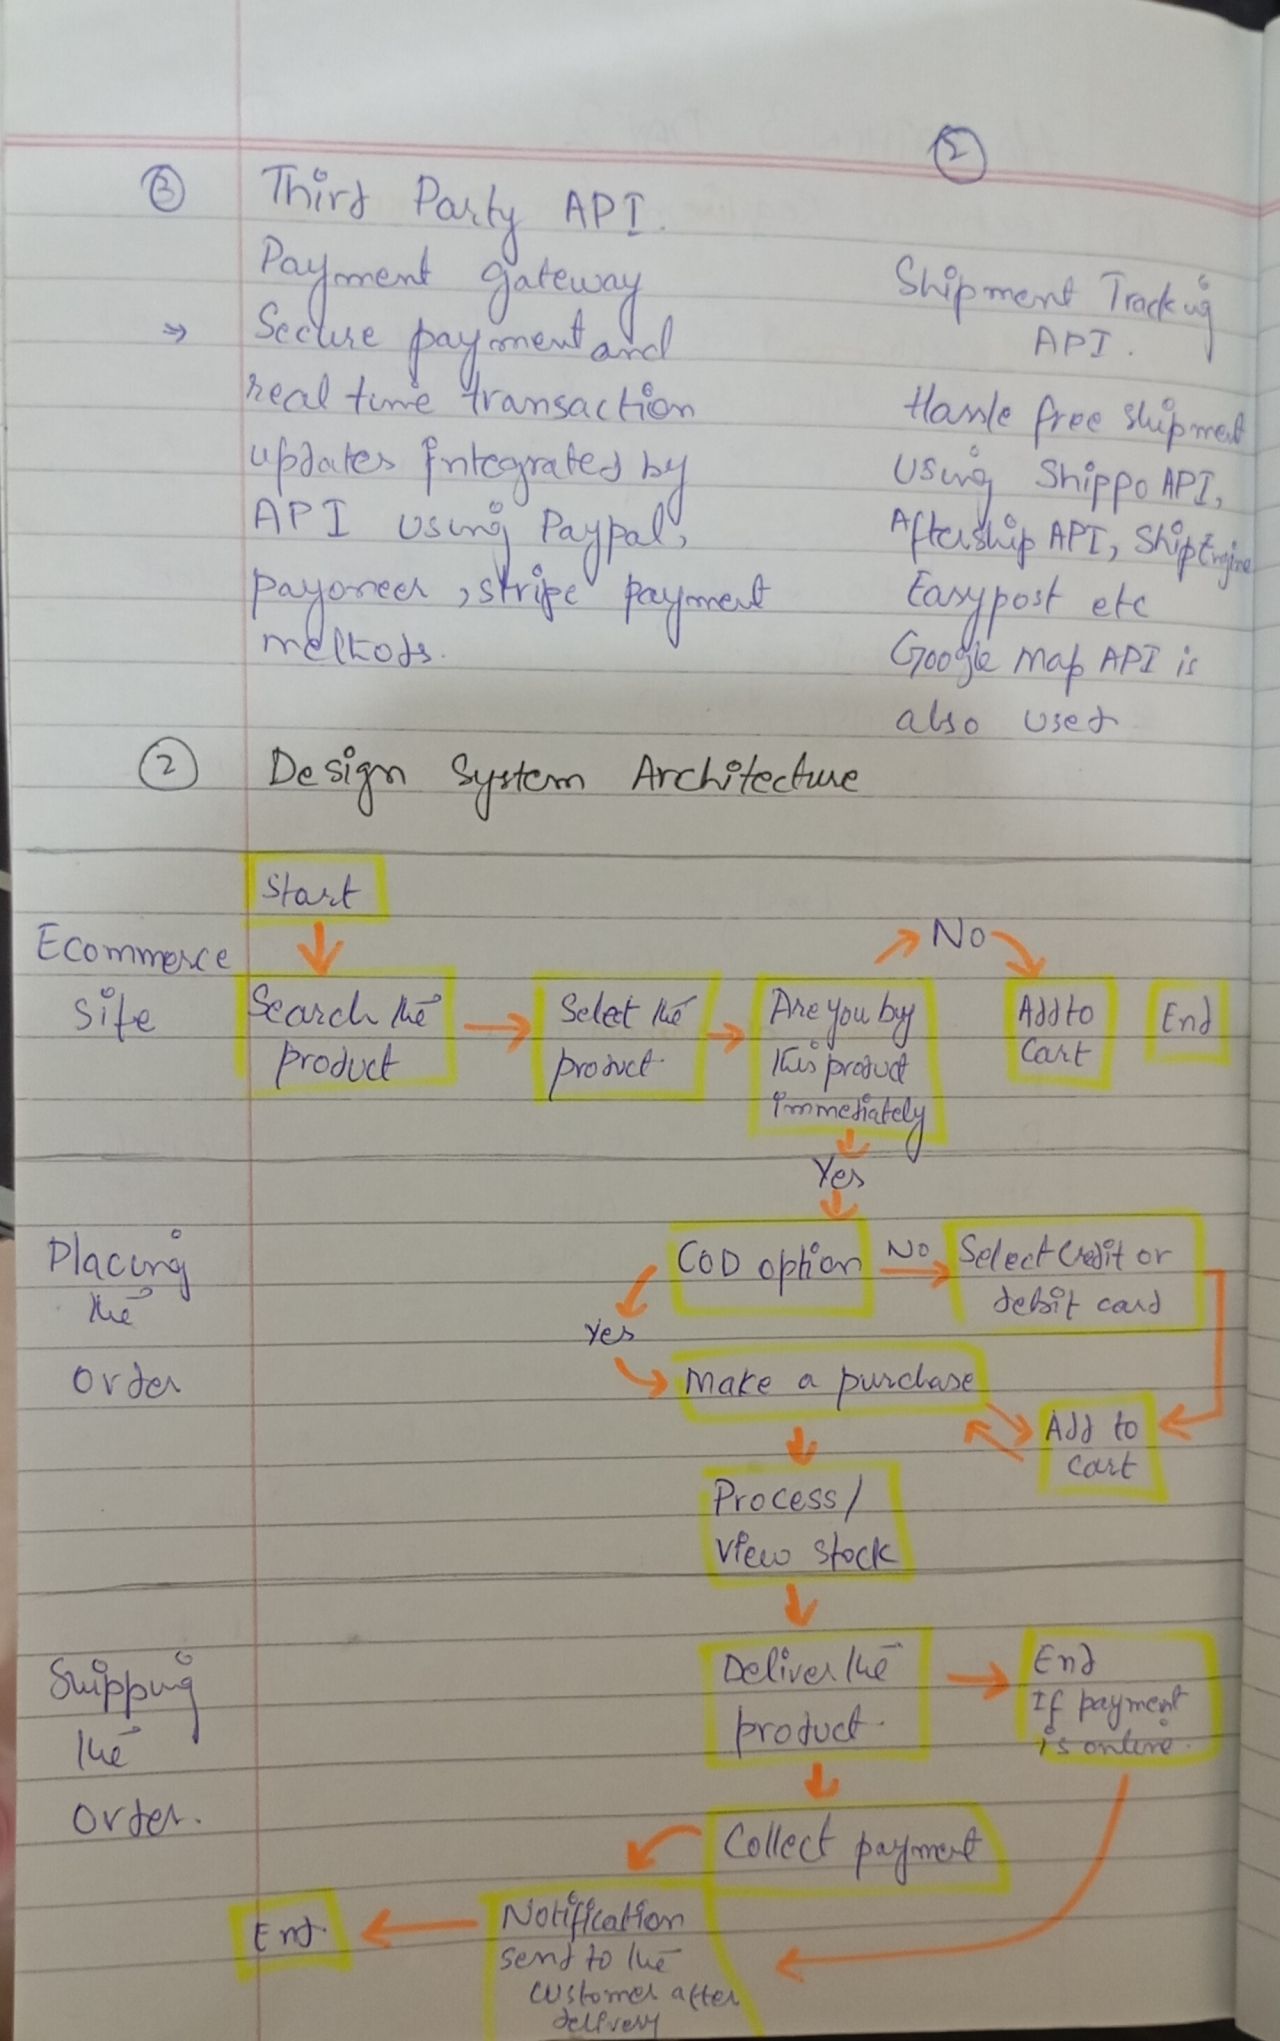 2
3 Third Party API.
Payment gateway
⇒ Secure payment and
real time transaction
updates integrated by
API using Paypal,
payoneer, stripe payment
methods.
Shipment Tracking
API.
Hassle free shipment
using Shippo API,
Aftership API, ShipEngine
Easypost etc
Google Map API is
also used
2 Design System Architecture
Start
Ecommerce
Site
Search the
product
Select the
product.
Are you by
this product
immediately
No
Add to
Cart
End
Yes
Placing
the
Order
COD option
No
Select Credit or
debit card
Yes
Make a purchase
Add to
cart
Process/
View stock
Shipping
the
Order.
Deliver the
product.
End
If payment
is online.
Collect payment
Notification
send to the
customer after
delivery
End.